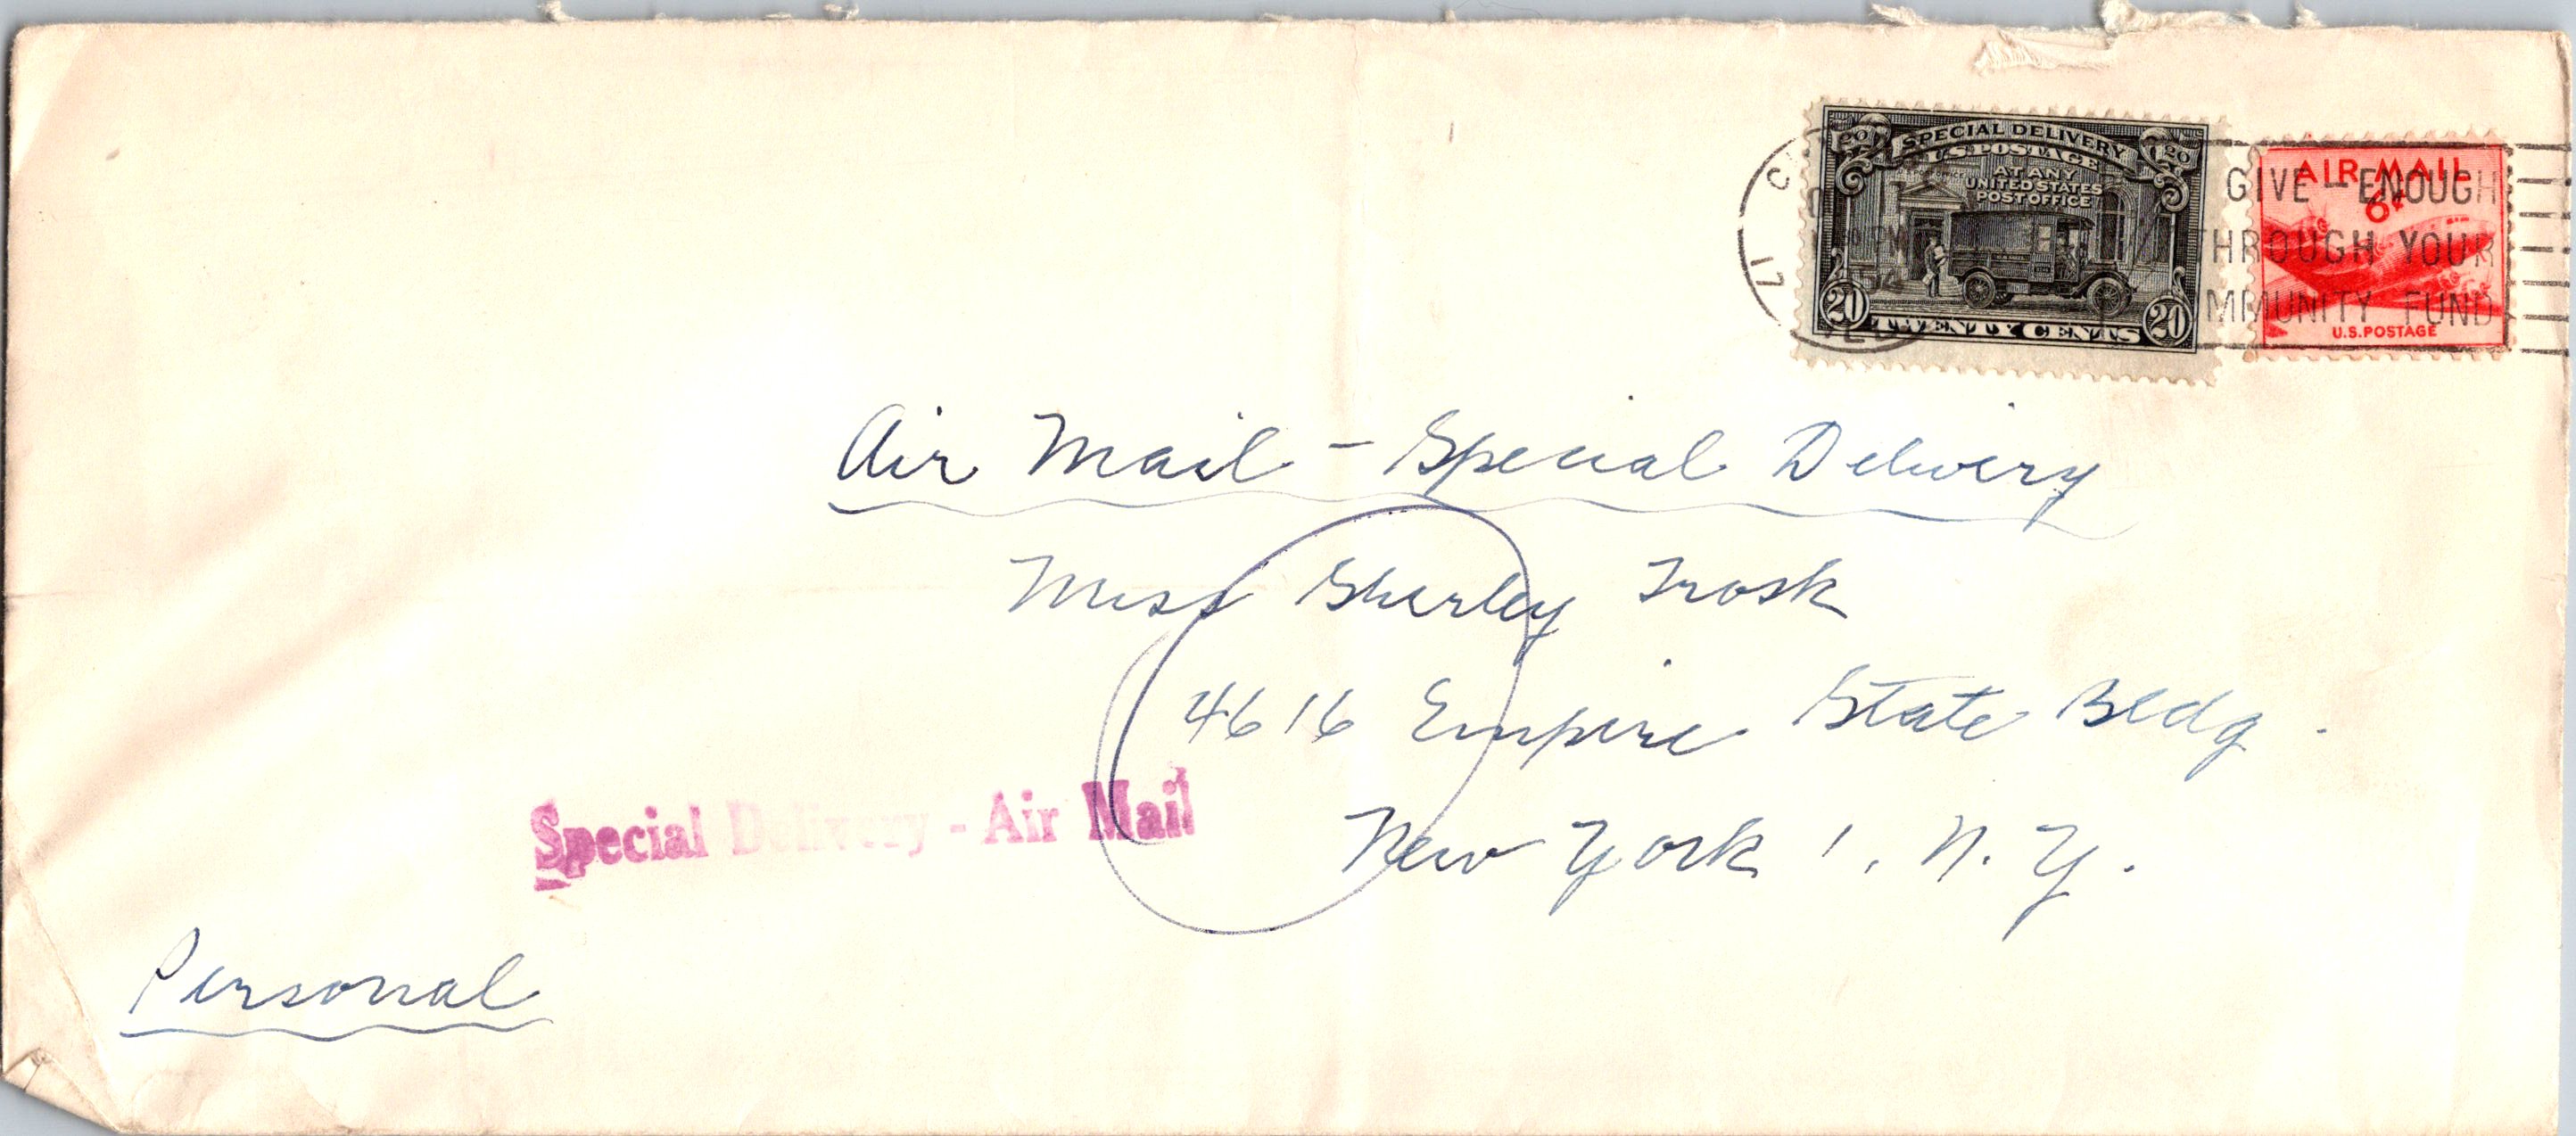 20 SPECIAL DELIVERY 20
U.S. POSTAGE
AT ANY
UNITED STATES
POST OFFICE
20 TWENTY CENTS 20
AIR MAIL
6¢
U.S. POSTAGE
GIVE - ENOUGH
THROUGH YOUR
MMUNITY FUND
17
Air Mail - Special Delivery
Miss Shirley Trosk
4616 Empire State Bldg.
New York 1, N.Y.
Special Delivery - Air Mail
Personal